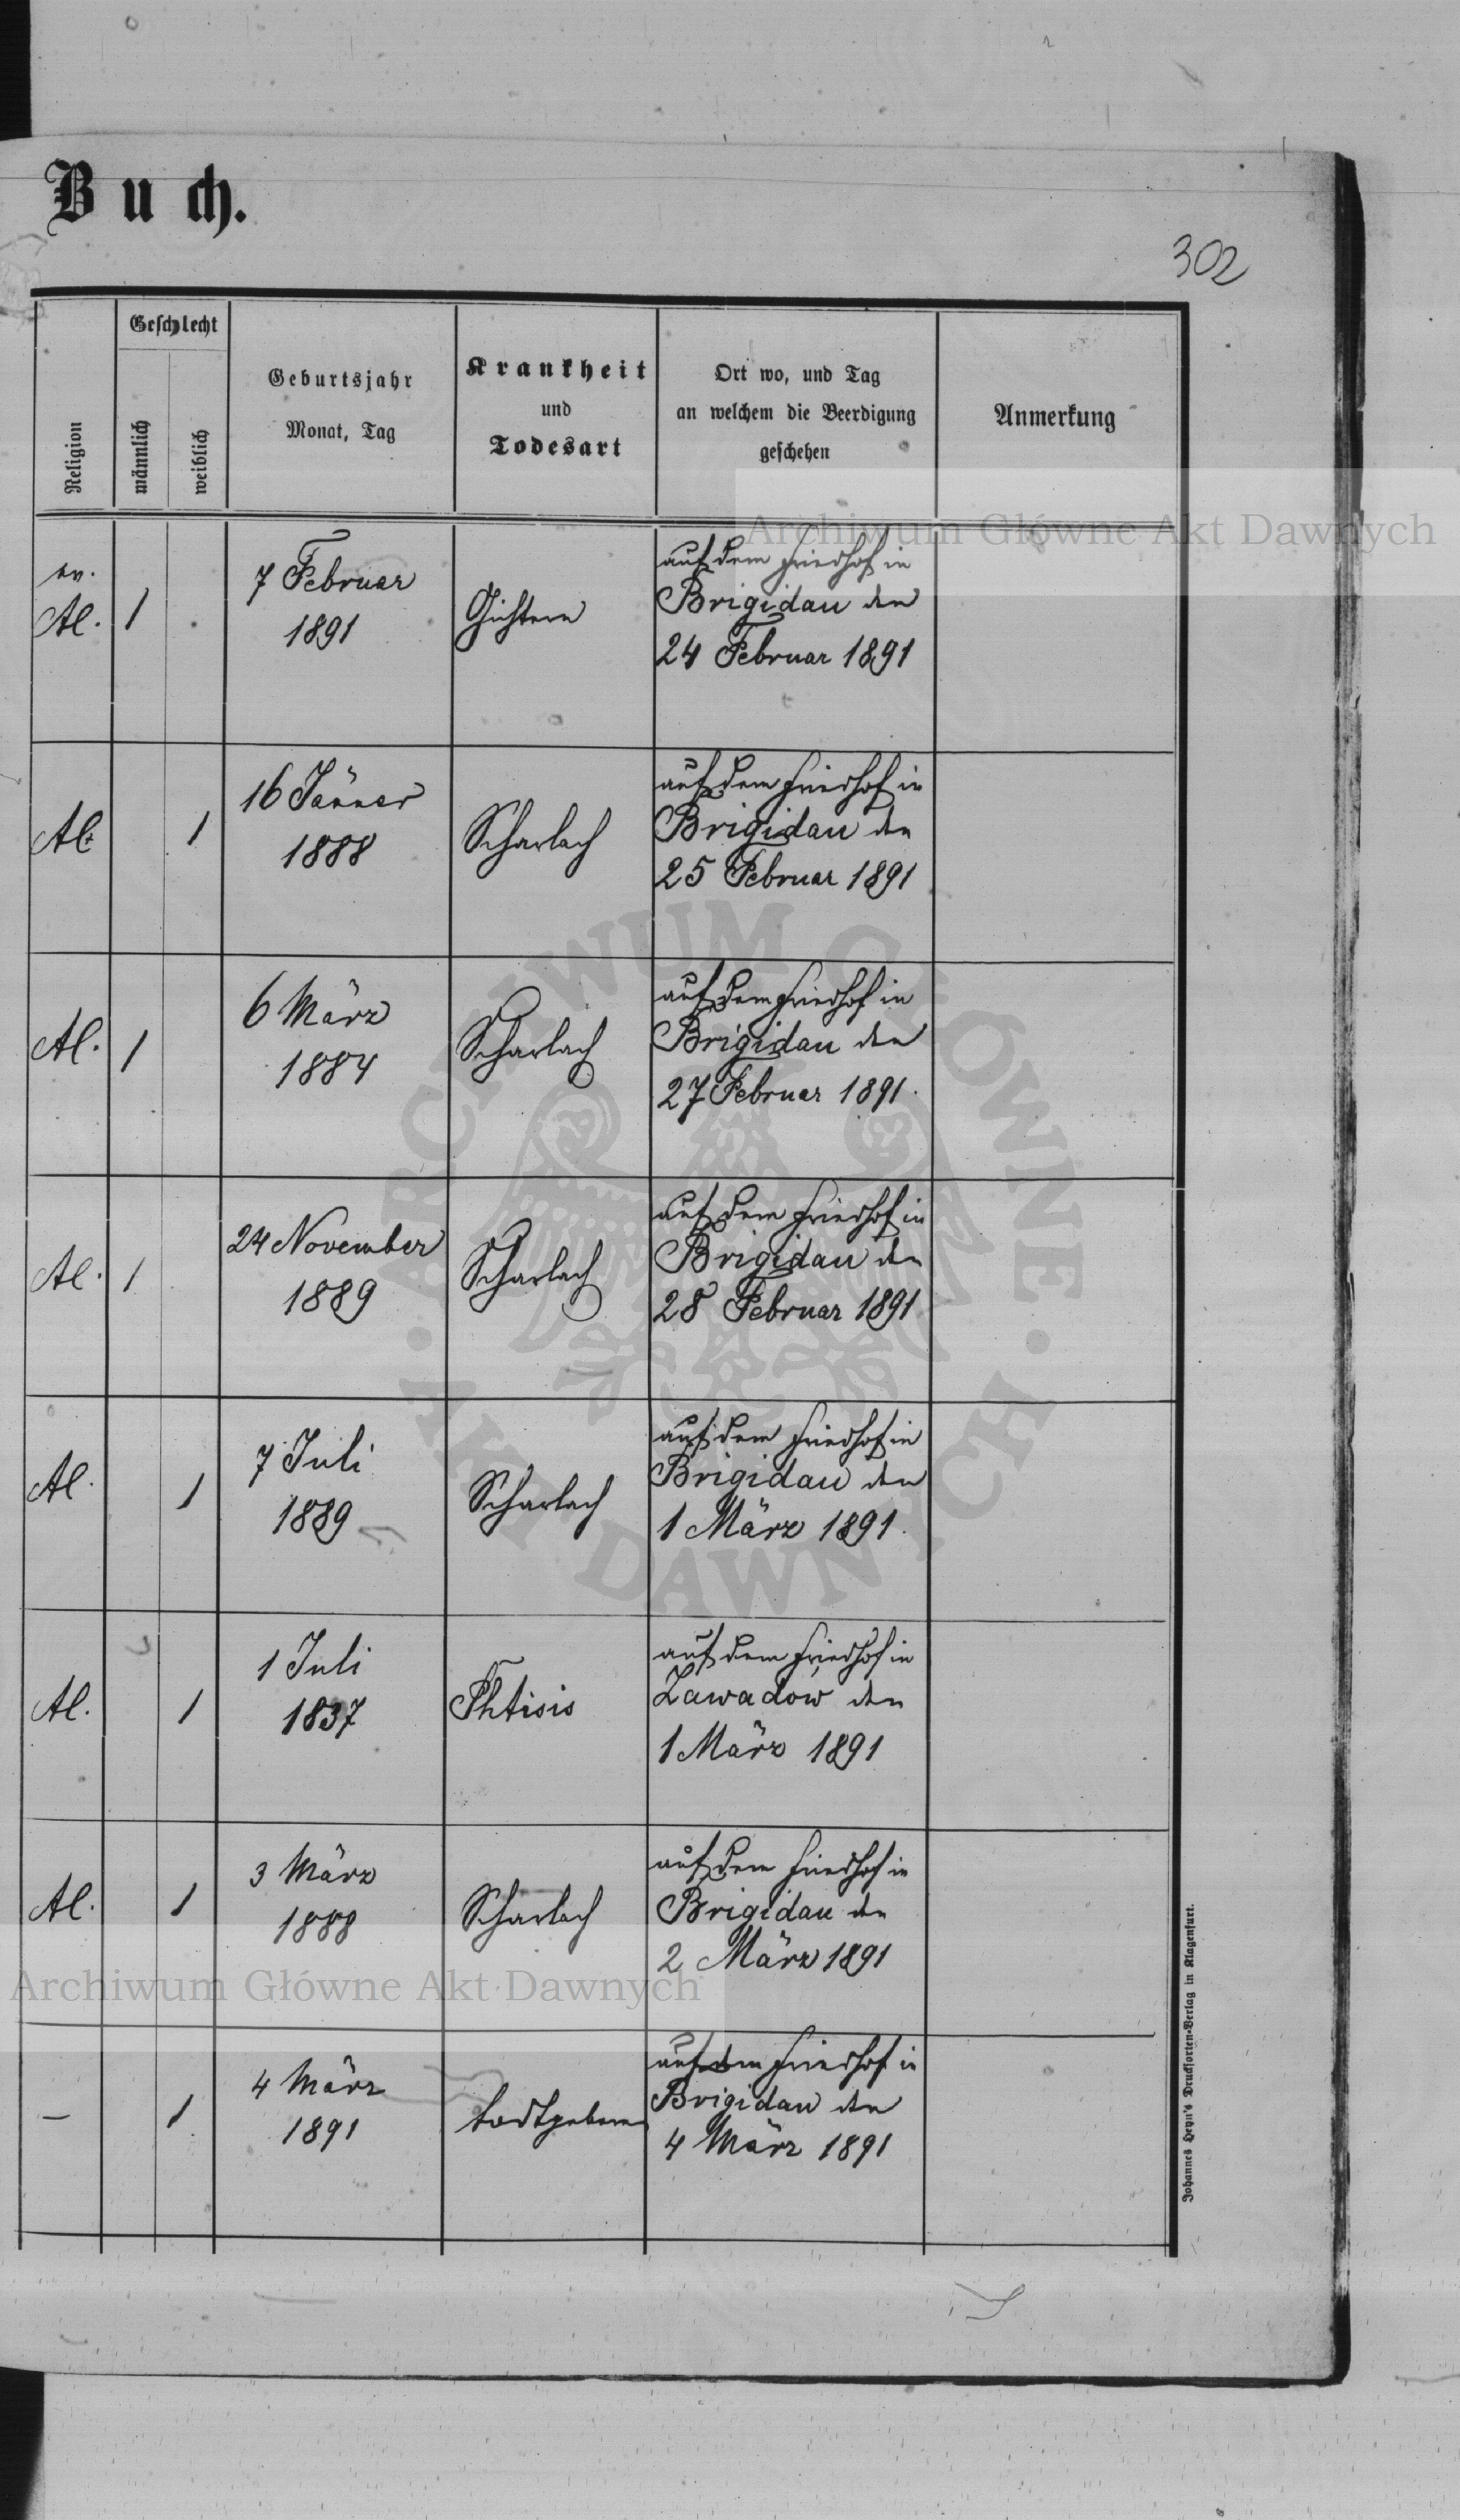 Buch.
302
Religion
Geschlecht
männlich
weiblich
Geburtsjahr
Monat, Tag
Krankheit
und
Todesart
Ort wo, und Tag
an welchem die Beerdigung
geschehen
Anmerkung
Archiwum Główne Akt Dawnych
ev.
Al.
1
7 Februar
1891
Gichtern
auf dem Friedhof in
Brigidau den
24 Februar 1891
Al.
1
16 Jänner
1888
Scharlach
auf dem Friedhof in
Brigidau den
25 Februar 1891
Al.
1
6 März
1884
Scharlach
auf dem Friedhof in
Brigidau den
27 Februar 1891.
Al.
1
24 November
1889
Scharlach
auf dem Friedhof in
Brigidau den
28 Februar 1891
Al.
1
7 Juli
1889
Scharlach
auf dem Friedhof in
Brigidau den
1 März 1891.
Al.
1
1 Juli
1837
Phtisis
auf dem Friedhof in
Zawadów den
1 März 1891
Al.
1
3 März
1888
Scharlach
auf dem Friedhof in
Brigidau den
2 März 1891
Archiwum Główne Akt Dawnych
–
1
4 März
1891
todtgeboren
auf dem Friedhof in
Brigidau den
4 März 1891
Johannes Heyn's Drucksorten-Verlag in Klagenfurt.
ARCHIWUM GŁÓWNE · AKT DAWNYCH ·